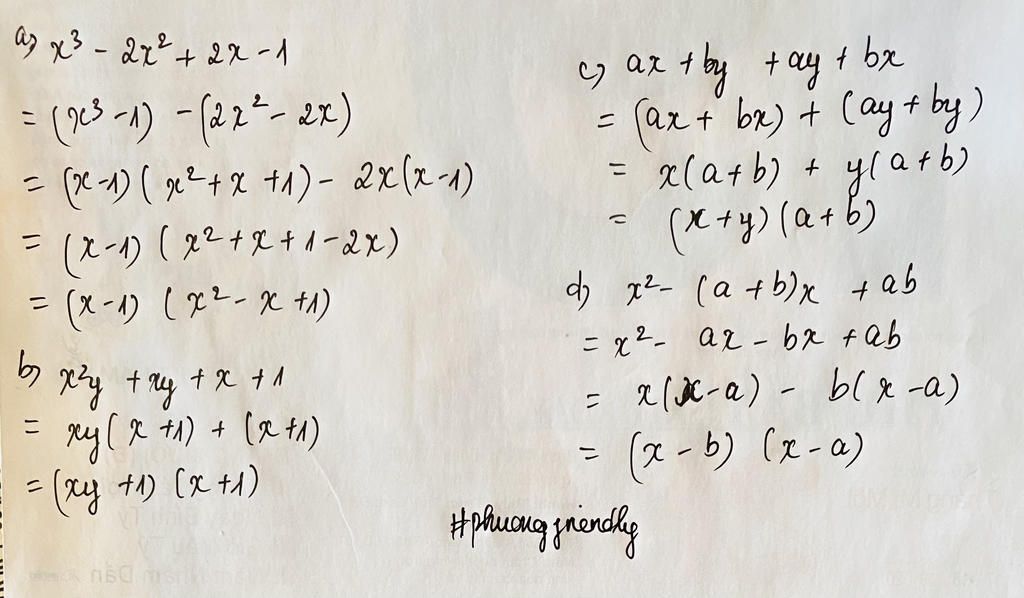 a) x³ - 2x² + 2x - 1
= (x³ - 1) - (2x² - 2x)
= (x-1) (x² + x + 1) - 2x(x-1)
= (x-1) (x² + x + 1 - 2x)
= (x-1) (x² - x + 1)
b) x²y + xy + x + 1
= xy(x + 1) + (x+1)
= (xy + 1) (x + 1)
c) ax + by + ay + bx
= (ax + bx) + (ay + by)
= x(a+b) + y(a+b)
= (x+y)(a+b)
d) x² - (a+b)x + ab
= x² - ax - bx + ab
= x(x-a) - b(x-a)
= (x-b) (x-a)
#phuongfriendly